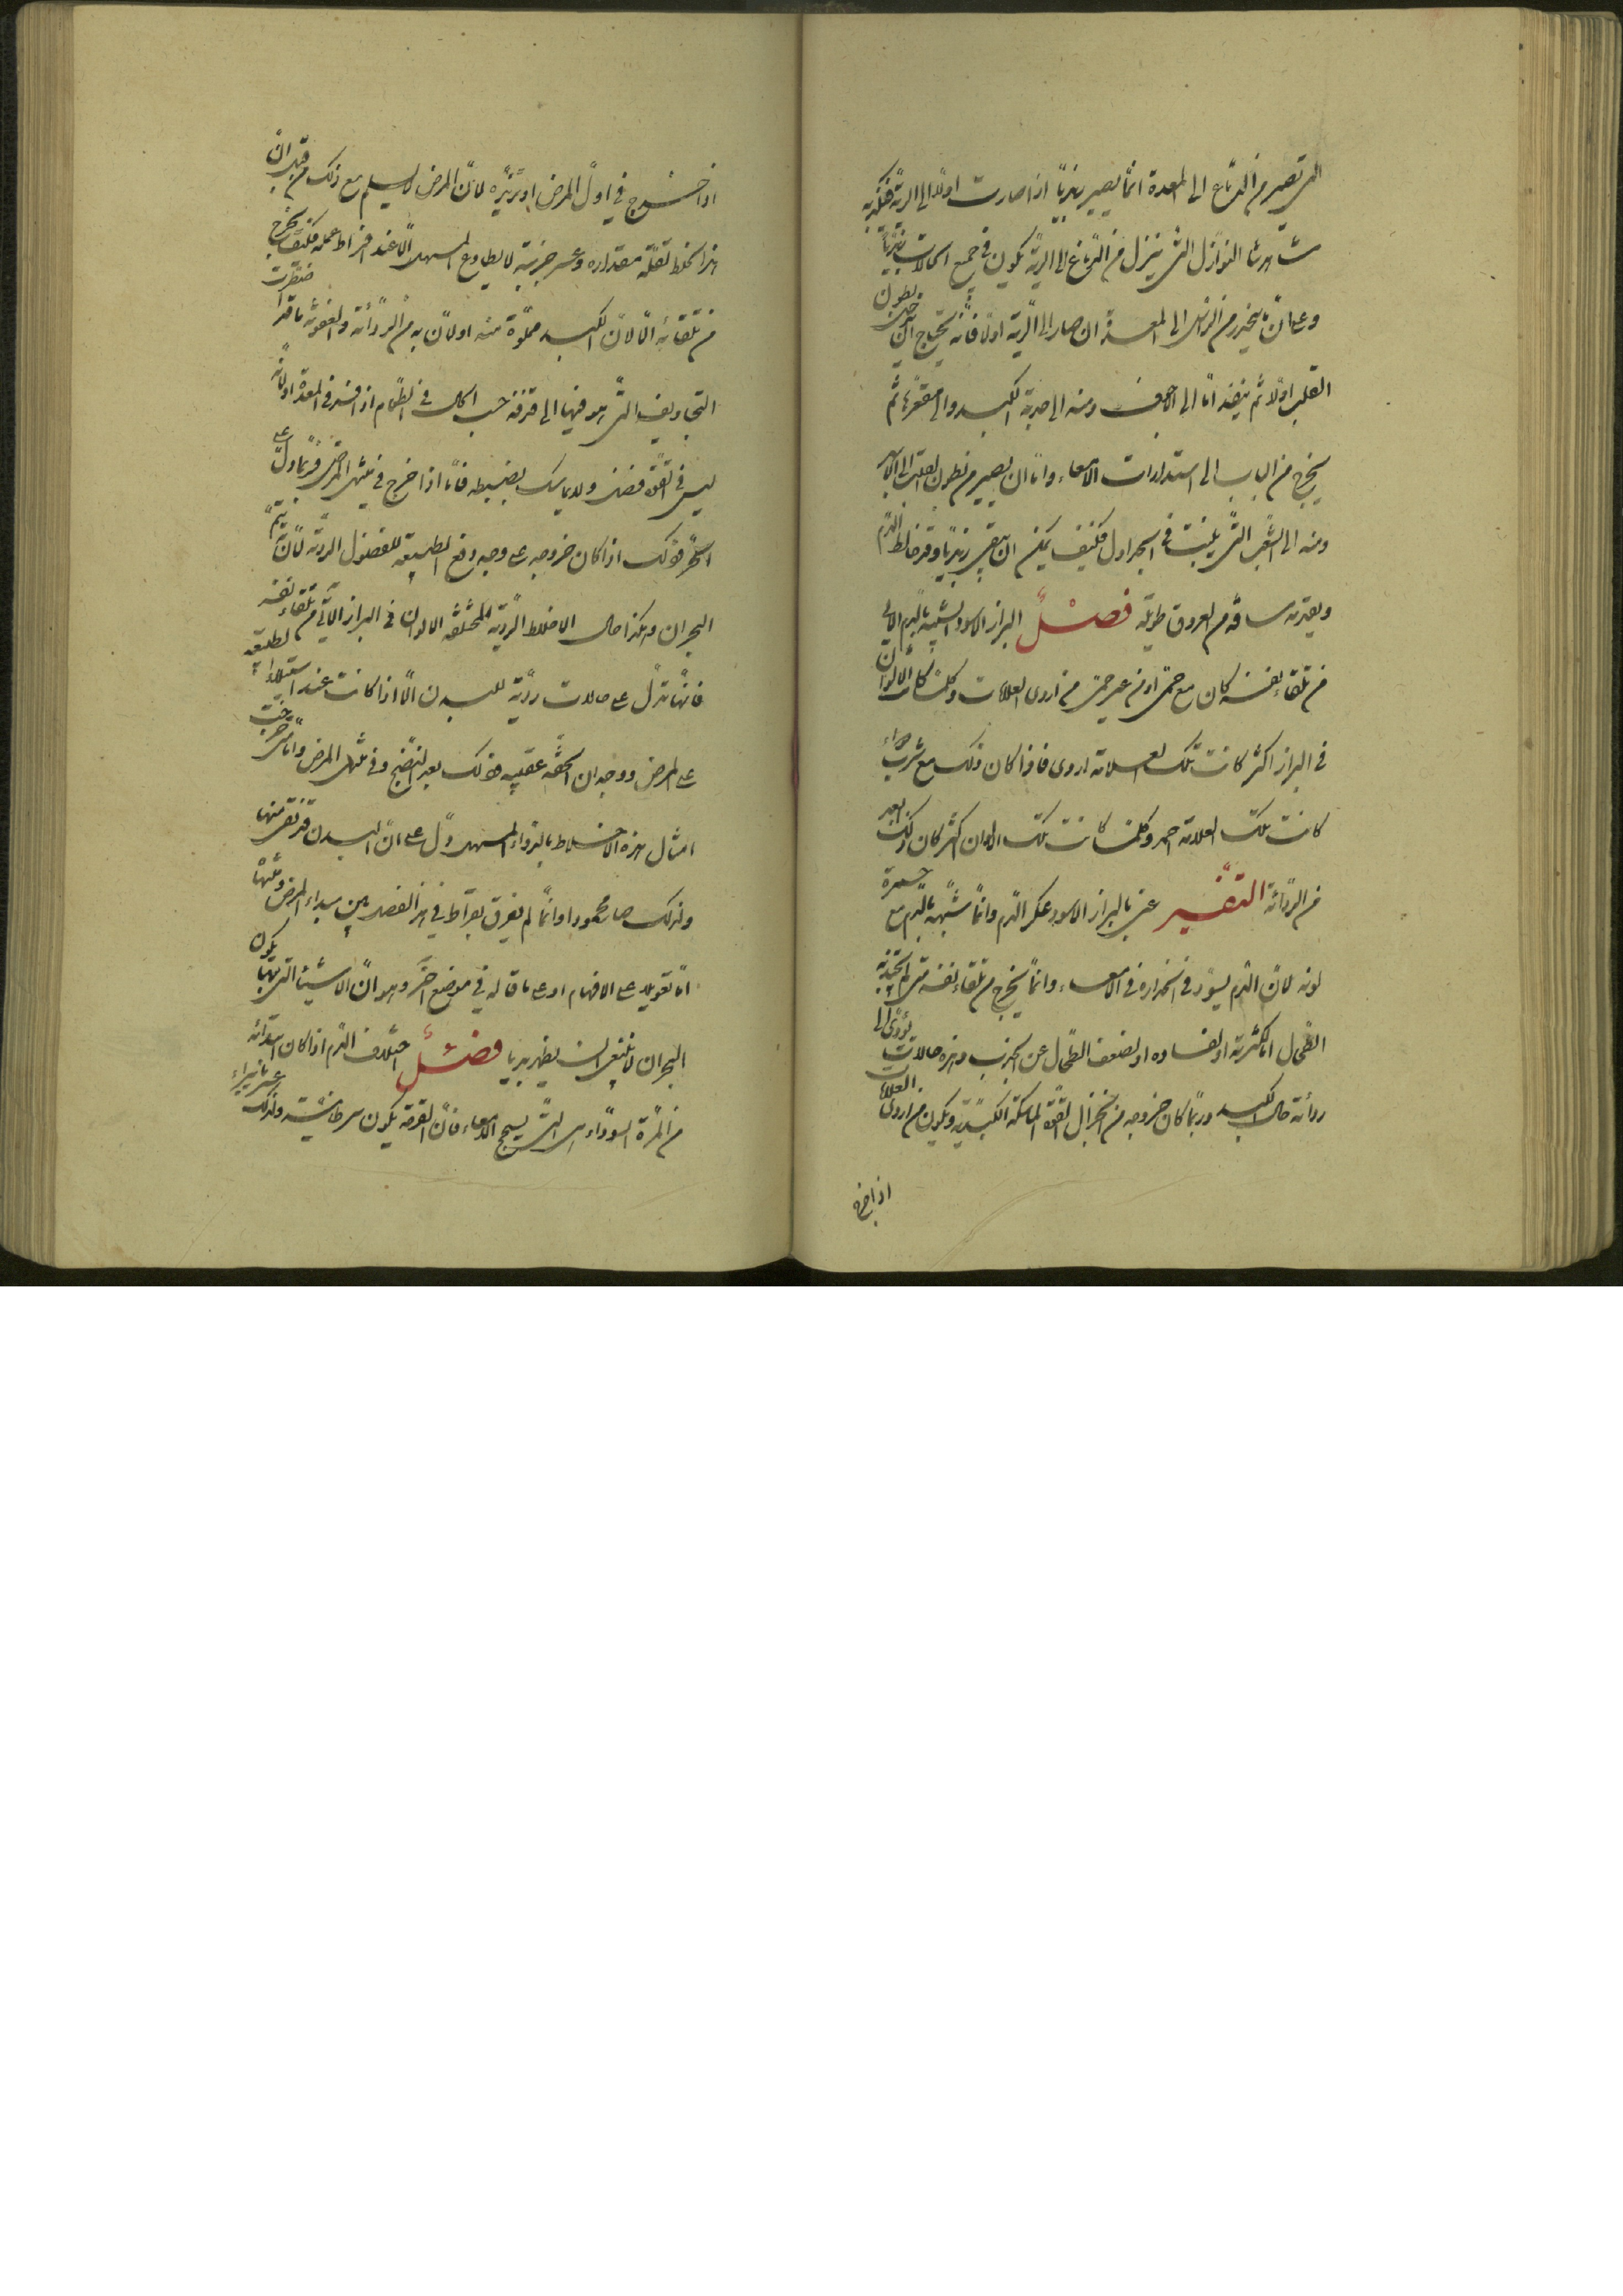 التى تصير من الدماغ الى المعدة انما يصير زبديا اذا صارت اولا الى الرية فكذبه
شاهدنا النوازل التى ينزل من الدماغ الى الرية يكون فى جميع الحالات زبديا
وعلى ان ما ينحدر من الراس الى المعدة ان صار الى الرية اولا فانه يحتاج ان يدخل بطون
القلب اولا ثم ينفذ اما الى الاجوف ومنه الى حدبة الكبد والى مقعرها ثم
يخرج من الباب الى استدارات الامعاء واما ان يصير من بطون القلب الى الابهر
ومنه الى الشعب التى ينبت فى الجداول فكيف يمكن ان يبقى زبديا وقد خالط الدم
وبعد مسافة من العروق طويلة فصل البراز الاسود الشبيه بالدم الاتى
من تلقاء نفسه كان مع حمى او من غير حمى من اردى العلامات وكلما كانت الالوان
فى البراز اكثر كانت تلك العلامة اردى فاذا كان ذلك مع شرب دواء
كانت تلك العلامة احمد وكلما كانت تلك الالوان اكثر كان ذلك ابعد
من الرداءة التفسير عنى بالبراز الاسود عكر الدم وانما شبهه بالدم مع حمرة
لونه لان الدم يسود فى انحداره فى الامعاء وانما يخرج من تلقاء نفسه متى لم يجتذبه
الطحال اما لكثرته او لفساده او لضعف الطحال عن الجذب وهذه حالات تؤدى الى
رداءة حال الكبد وربما كان خروجه من انخزال القوة الماسكة الكبدية ويكون من اردى العلامات
اذا خرج
اذا خرج فى اول المرض او تزيده لان المرض لا يسلم مع ذلك من قبل ان
هذا الخلط لقلة مقداره وعسر جذبه لا يطاوع المسهل الا عند افراط عمله فكيف يخرج
من تلقائه الا لان الكبد مملوة منه او لان به من الرداءة والعفونة ما قد اضطرت
التجاويف التى هو فيها الى قذفه حسب الحال فى الطعام اذا فسد فى المعدة او لانه
ليس فى القوة فضل ولا تماسك يضبطه فاما اذا خرج فى منتهى المرض فربما دل على
الخير وذلك اذا كان خروجه على وجه دفع الطبيعة للفضول الردية لان يتم
البحران وهكذا حال الاخلاط الردية المختلفة الالوان فى البراز الاتى من تلقاء نفسه
فانها تدل على حالات ردية للبدن الا اذا كانت عند استيلاء الطبيعة
على المرض ووجدان الخفة عقيبه وذلك بعد النضج وفى منتهى المرض واما متى خرجت
امثال هذه الاخلاط بالدواء المسهل دل على ان البدن قد نقى منها
ولذلك صار محمودا وانما لم يفرق بقراط فى هذا الفصل بين مبداء المرض ومنتهاه
اما تعويلا على الافهام او على ما قاله فى موضع اخر وهو ان الاشياء التى بها يكون
البحران لا ينبغى ان يظهر بديا فصل اختلاف الدم اذا كان ابتدائه
من المرة السوداء هى التى يسحج الامعاء فان القرحة يكون سرطانية ولذلك عسر ما يبراء